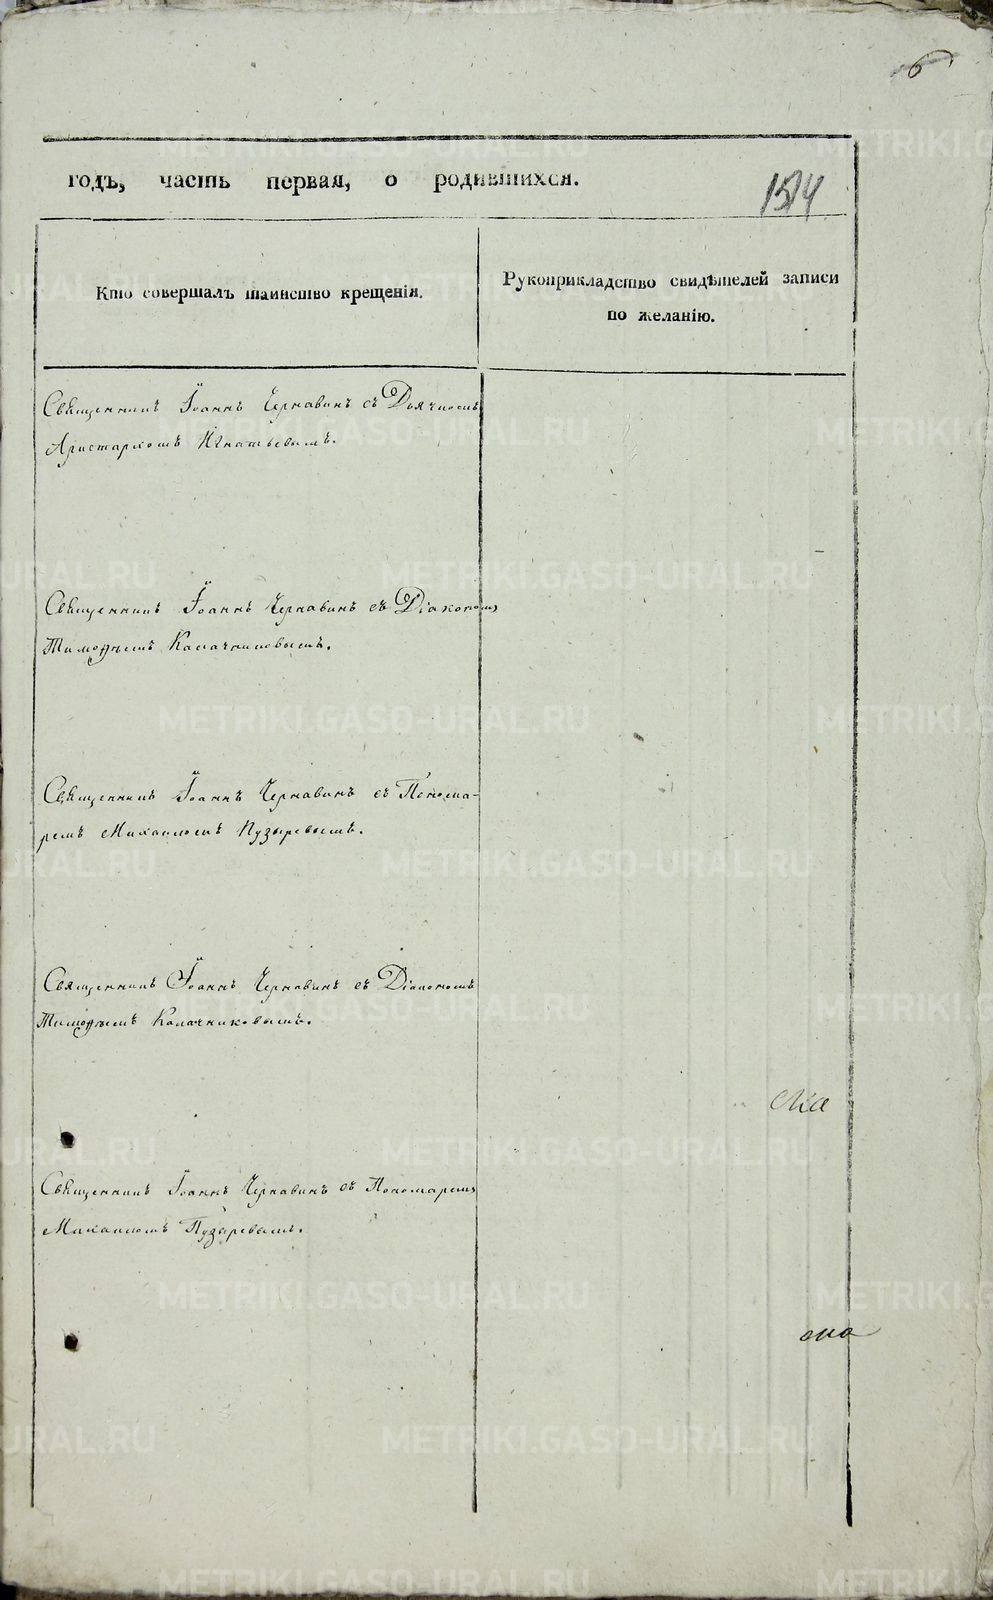 6
годъ, часть первая, о родившихся.
Кто совершалъ таинство крещенія.
Рукоприкладство свидѣтелей записи
по желанію.
Священникъ Іоаннъ Чернавинъ съ Дьячкомъ
Аристархомъ Игнатьевымъ.
Священникъ Іоаннъ Чернавинъ съ Діакономъ
Тимофѣемъ Калачниковымъ.
Священникъ Іоаннъ Чернавинъ съ Понома-
ремъ Михаиломъ Пузыревымъ.
Священникъ Іоаннъ Чернавинъ съ Діакономъ
Тимофѣемъ Калачниковымъ.
Священникъ Іоаннъ Чернавинъ съ Пономаремъ
Михаиломъ Пузыревымъ.
METRIKI.GASO-URAL.RU